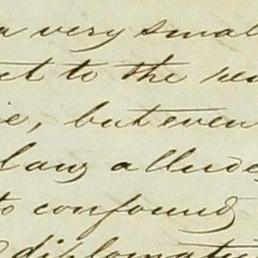 a very small
to the
but even
law allude
to confound
diplomatic